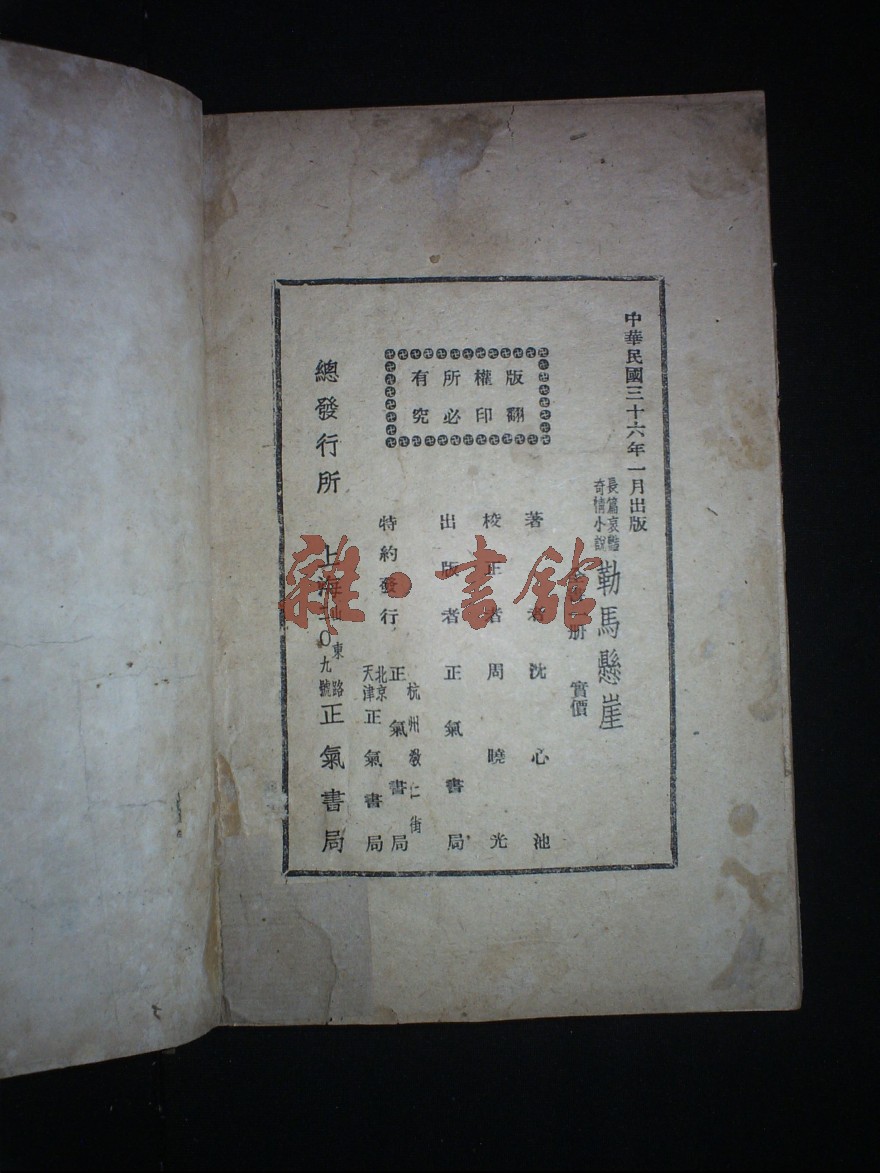 中華民國三十六年一月出版
長篇哀豔
奇情小說
勒馬懸崖
全書一册 實價
著者 沈心池
校正者 周曉光
出版者 正氣書局
版權所有
翻印必究
特約發行
杭州教仁街
正氣書局
北京
天津
正氣書局
總發行所 上海山東路二〇九號 正氣書局
雜·書館